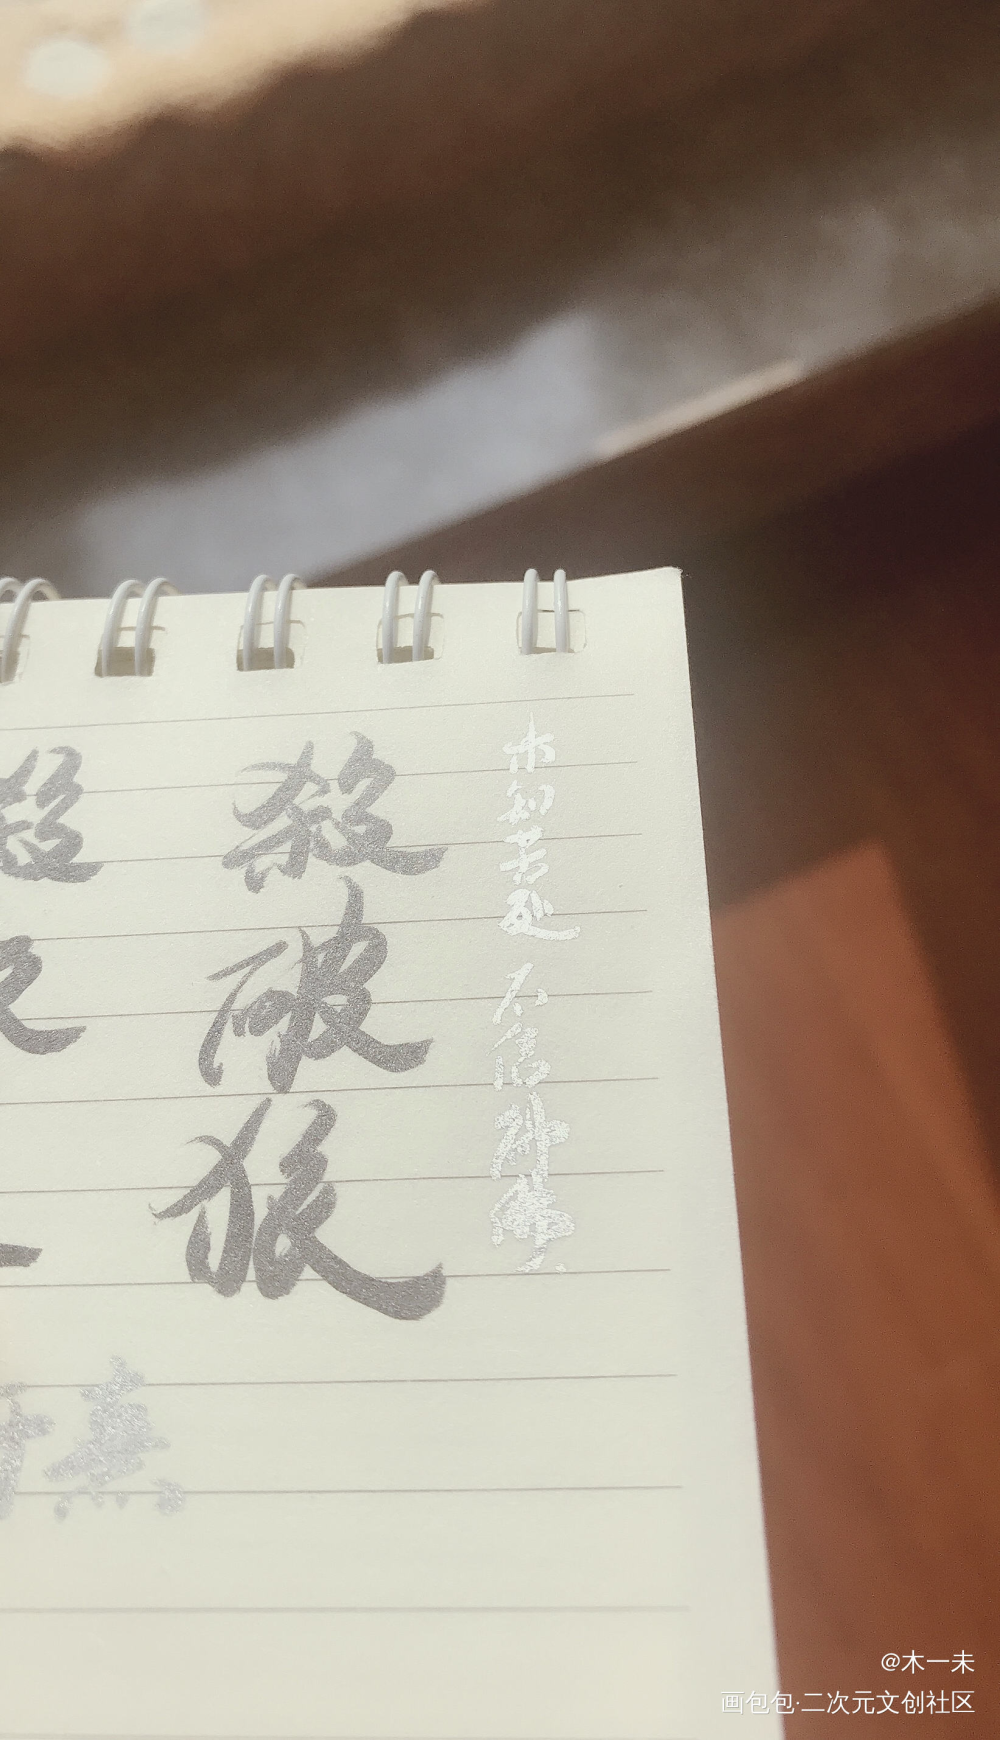 未知苦处
不信神佛
殺
破
狼
殺
熹
@木一未
画包包·二次元文创社区